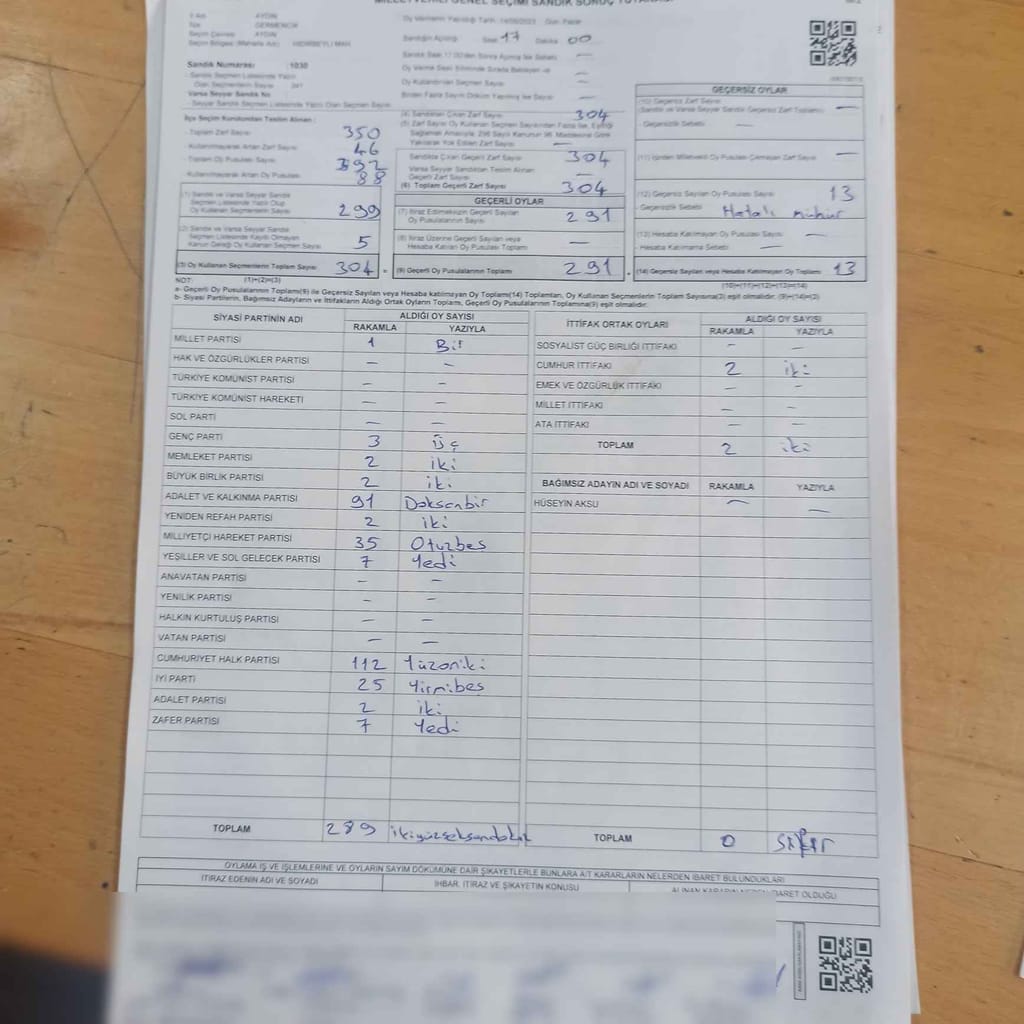 MİLLETVEKİLİ GENEL SEÇİMİ SANDIK SONUÇ TUTANAĞI
AYDIN
GERMENCİK
Seçim Çevresi AYDIN
HIDIRBEYLİ MAH
Sandık Numarası :1030
Sandık Seçmen Listesinde Yazılı
Olan Seçmenlerin Sayısı 341
Varsa Seyyar Sandık No
Seyyar Sandık Seçmen Listesinde Yazılı Olan Seçmen Sayısı
İlçe Seçim Kurulundan Teslim Alınan :
Toplam Zarf Sayısı 350
Kullanılmayarak Artan Zarf Sayısı 46
Toplam Oy Pusulası Sayısı 392
Kullanılmayarak Artan Oy Pusulası 88
(1) Sandık ve Varsa Seyyar Sandık
Seçmen Listesinde Yazılı Olup
Oy Kullanan Seçmenlerin Sayısı 299
(2) Sandık ve Varsa Seyyar Sandık
Seçmen Listesinde Kayıtlı Olmayan
Kanun Gereği Oy Kullanan Seçmen Sayısı 5
(3) Oy Kullanan Seçmenlerin Toplam Sayısı 304 =
(1)+(2)=(3)
Oy Vermenin Yapıldığı Tarih : 14/05/2023 Gün: Pazar
Sandığın Açıldığı Saat 17 Dakika 00
(4) Sandıktan Çıkan Zarf Sayısı 304
Yakılarak Yok Edilen Zarf Sayısı —
Sandıkta Çıkan Geçerli Zarf Sayısı 304
Varsa Seyyar Sandıktan Teslim Alınan
Geçerli Zarf Sayısı —
(6) Toplam Geçerli Zarf Sayısı 304
GEÇERLİ OYLAR
(7) İtiraz Edilmeksizin Geçerli Sayılan
Oy Pusulalarının Sayısı 291
(8) İtiraz Üzerine Geçerli Sayılan veya
Hesaba Katılan Oy Pusulası Toplamı —
(9) Geçerli Oy Pusulalarının Toplamı 291 +
GEÇERSİZ OYLAR
(10) Geçersiz Zarf Sayısı
(Sandık ve Varsa Seyyar Sandık Geçersiz Zarf Toplamı) —
Geçersizlik Sebebi —
(12) Geçersiz Sayılan Oy Pusulası Sayısı 13
Geçersizlik Sebebi Hatalı mühür
(13) Hesaba Katılmayan Oy Pusulası Sayısı —
Hesaba Katılmama Sebebi —
(14) Geçersiz Sayılan veya Hesaba Katılmayan Oy Toplamı 13
(10)+(11)+(12)+(13)=(14)
NOT:
a- Geçerli Oy Pusulalarının Toplamı(9) ile Geçersiz Sayılan veya Hesaba katılmayan Oy Toplamı(14) Toplamları, Oy Kullanan Seçmenlerin Toplam Sayısına(3) eşit olmalıdır. (9)+(14)=(3)
b- Siyasi Partilerin, Bağımsız Adayların ve İttifakların Aldığı Ortak Oyların Toplamı, Geçerli Oy Pusulalarının Toplamına(9) eşit olmalıdır.
SİYASİ PARTİNİN ADI ALDIĞI OY SAYISI
RAKAMLA YAZIYLA
MİLLET PARTİSİ 1 Bir
HAK VE ÖZGÜRLÜKLER PARTİSİ — —
TÜRKİYE KOMÜNİST PARTİSİ — —
TÜRKİYE KOMÜNİST HAREKETİ — —
SOL PARTİ — —
GENÇ PARTİ 3 Üç
MEMLEKET PARTİSİ 2 iki
BÜYÜK BİRLİK PARTİSİ 2 iki
ADALET VE KALKINMA PARTİSİ 91 Doksanbir
YENİDEN REFAH PARTİSİ 2 iki
MİLLİYETÇİ HAREKET PARTİSİ 35 Otuzbes
YEŞİLLER VE SOL GELECEK PARTİSİ 7 Yedi
ANAVATAN PARTİSİ — —
YENİLİK PARTİSİ — —
HALKIN KURTULUŞ PARTİSİ — —
VATAN PARTİSİ — —
CUMHURİYET HALK PARTİSİ 112 Yüzoniki
İYİ PARTİ 25 Yirmibes
ADALET PARTİSİ 2 iki
ZAFER PARTİSİ 7 Yedi
TOPLAM 289 ikiyüzseksendokuz
İTTİFAK ORTAK OYLARI ALDIĞI OY SAYISI
RAKAMLA YAZIYLA
SOSYALİST GÜÇ BİRLİĞİ İTTİFAKI — —
CUMHUR İTTİFAKI 2 iki
EMEK VE ÖZGÜRLÜK İTTİFAKI — —
MİLLET İTTİFAKI — —
ATA İTTİFAKI — —
TOPLAM 2 iki
BAĞIMSIZ ADAYIN ADI VE SOYADI RAKAMLA YAZIYLA
HÜSEYİN AKSU — —
TOPLAM 0 sıfır
OYLAMA İŞ VE İŞLEMLERİNE VE OYLARIN SAYIM DÖKÜMÜNE DAİR ŞİKAYETLERLE BUNLARA AİT KARARLARIN NELERDEN İBARET BULUNDUKLARI
İTİRAZ EDENİN ADI VE SOYADI İHBAR, İTİRAZ VE ŞİKAYETİN KONUSU ALINAN KARARIN NEDEN İBARET OLDUĞU